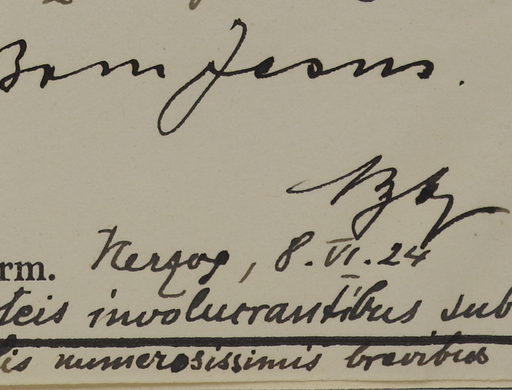 Bom Jesus.
rm. Herzog, 8.VI.24
teis involucrantibus sub
lis numerosissimis brevibus